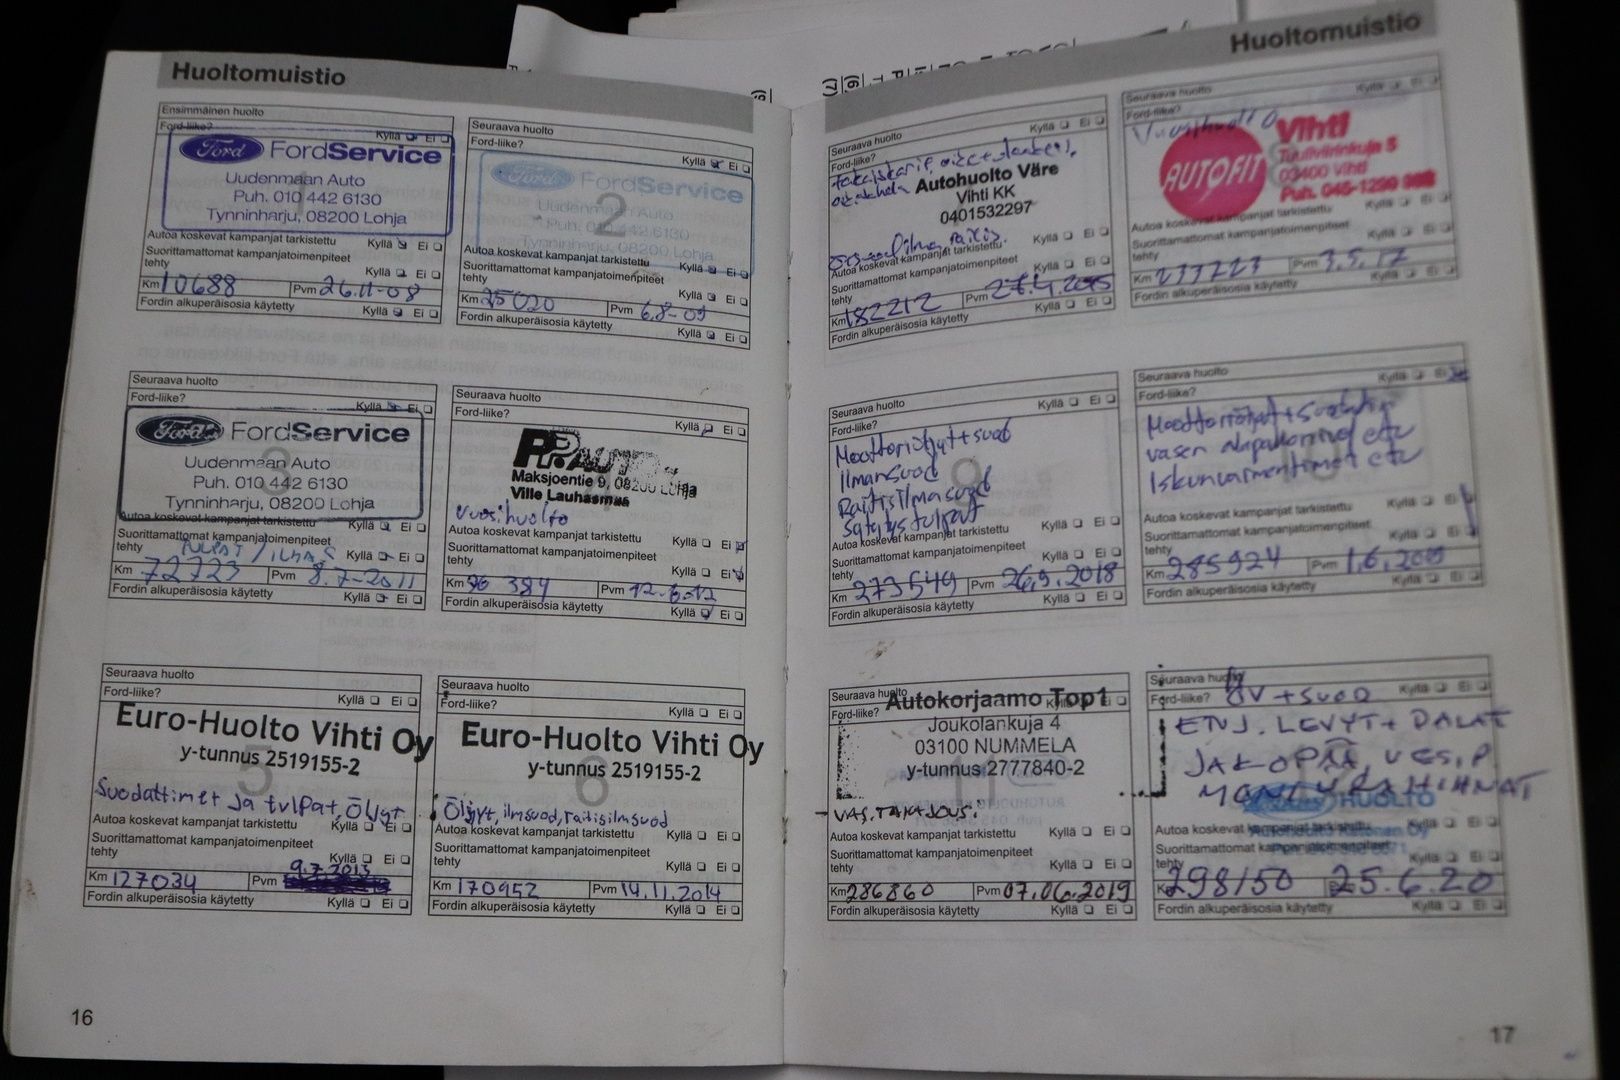 Huoltomuistio
Ensimmäinen huolto
Ford-liike?
Kyllä Ei
Ford FordService
Uudenmaan Auto
Puh. 010 442 6130
Tynninharju, 08200 Lohja
Autoa koskevat kampanjat tarkistettu
Kyllä Ei
Suorittamattomat kampanjatoimenpiteet
tehty
Kyllä Ei
Km 10688 Pvm 26.11-08
Fordin alkuperäisosia käytetty
Kyllä Ei
Seuraava huolto
Ford-liike?
Kyllä Ei
Ford FordService
2
Uudenmaan Auto
Puh. 010 442 6130
Tynninharju, 08200 Lohja
Autoa koskevat kampanjat tarkistettu
Kyllä Ei
Suorittamattomat kampanjatoimenpiteet
tehty
Kyllä Ei
Km 25020 Pvm 6.8-09
Fordin alkuperäisosia käytetty
Kyllä Ei
Seuraava huolto
Ford-liike?
Kyllä Ei
Ford FordService
3
Uudenmaan Auto
Puh. 010 442 6130
Tynninharju, 08200 Lohja
Autoa koskevat kampanjat tarkistettu
Kyllä Ei
Suorittamattomat kampanjatoimenpiteet
tehty
TULPAT / ILMAS
Kyllä Ei
Km 72723 Pvm 8.7-2011
Fordin alkuperäisosia käytetty
Kyllä Ei
Seuraava huolto
Ford-liike?
Kyllä Ei
Maksjoentie 9, 08200 Lohja
Ville Lauhasmaa
vuosihuolto
Autoa koskevat kampanjat tarkistettu
Kyllä Ei
Suorittamattomat kampanjatoimenpiteet
tehty
Kyllä Ei
Km 96 384 Pvm 12.6.12
Fordin alkuperäisosia käytetty
Kyllä Ei
Seuraava huolto
Ford-liike?
Kyllä Ei
Euro-Huolto Vihti Oy
y-tunnus 2519155-2
5
Suodattimet ja tulpat, Öljyt
Autoa koskevat kampanjat tarkistettu
Kyllä Ei
Suorittamattomat kampanjatoimenpiteet
tehty
Kyllä Ei
Km 127034 Pvm 9.7.2013
Fordin alkuperäisosia käytetty
Kyllä Ei
Seuraava huolto
Ford-liike?
Kyllä Ei
Euro-Huolto Vihti Oy
y-tunnus 2519155-2
6
Öljyt, ilmsuod, raitisilmsuod
Autoa koskevat kampanjat tarkistettu
Kyllä Ei
Suorittamattomat kampanjatoimenpiteet
tehty
Kyllä Ei
Km 170952 Pvm 14.11.2014
Fordin alkuperäisosia käytetty
Kyllä Ei
16
Huoltomuistio
Seuraava huolto
Ford-liike?
Kyllä Ei
Autohuolto Väre
Vihti KK
0401532297
Autoa koskevat kampanjat tarkistettu
Kyllä Ei
Suorittamattomat kampanjatoimenpiteet
tehty
Kyllä Ei
Km 182212 Pvm 27.4.2015
Fordin alkuperäisosia käytetty
Kyllä Ei
Seuraava huolto
Ford-liike?
Kyllä Ei
Vuosihuolto
AUTOFIT
Vihti
Tuuliviirinkuja 5
03400 Vihti
Puh. 045-1290
Autoa koskevat kampanjat tarkistettu
Kyllä Ei
Suorittamattomat kampanjatoimenpiteet
tehty
Kyllä Ei
Km 233223 Pvm 3.5.17
Fordin alkuperäisosia käytetty
Kyllä Ei
Seuraava huolto
Ford-liike?
Kyllä Ei
9
Moottoriöljyt+suod
Ilmansuod
Raitisilmasuod
Sytytystulpat
Autoa koskevat kampanjat tarkistettu
Kyllä Ei
Suorittamattomat kampanjatoimenpiteet
tehty
Kyllä Ei
Km 273549 Pvm 26.9.2018
Fordin alkuperäisosia käytetty
Kyllä Ei
Seuraava huolto
Ford-liike?
Kyllä Ei
10
Moottoriöljyt+suodatin
vasen alapallonivel etu
Iskunvaimentimet etu
Autoa koskevat kampanjat tarkistettu
Kyllä Ei
Suorittamattomat kampanjatoimenpiteet
tehty
Kyllä Ei
Km 285924 Pvm 1.6.2019
Fordin alkuperäisosia käytetty
Kyllä Ei
Seuraava huolto
Ford-liike?
Kyllä Ei
Autokorjaamo Top1
Joukolankuja 4
03100 NUMMELA
y-tunnus 2777840-2
11
VAS.TAKAJOUSI
Autoa koskevat kampanjat tarkistettu
Kyllä Ei
Suorittamattomat kampanjatoimenpiteet
tehty
Kyllä Ei
Km 286860 Pvm 07.06.2019
Fordin alkuperäisosia käytetty
Kyllä Ei
Seuraava huolto
Ford-liike?
Kyllä Ei
ÖV + SUOD
ETU J. LEVYT + PALAT
JAKOPÄÄ, VES.P
MONIURAHIHNAT
HUOLTO
Autoa koskevat kampanjat tarkistettu
Kyllä Ei
Suorittamattomat kampanjatoimenpiteet
tehty
Kyllä Ei
Km 298150 25.6.20
Fordin alkuperäisosia käytetty
Kyllä Ei
17